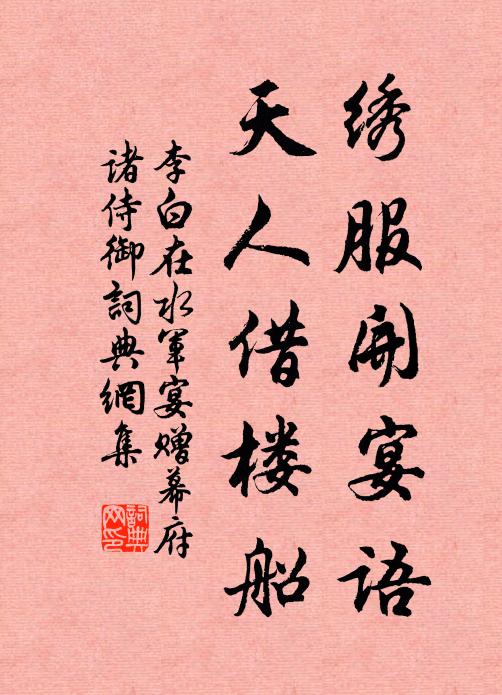 绣服开宴语
天人借楼船
李白在水军宴赠幕府
诸侍御詞典網集
詞典网印